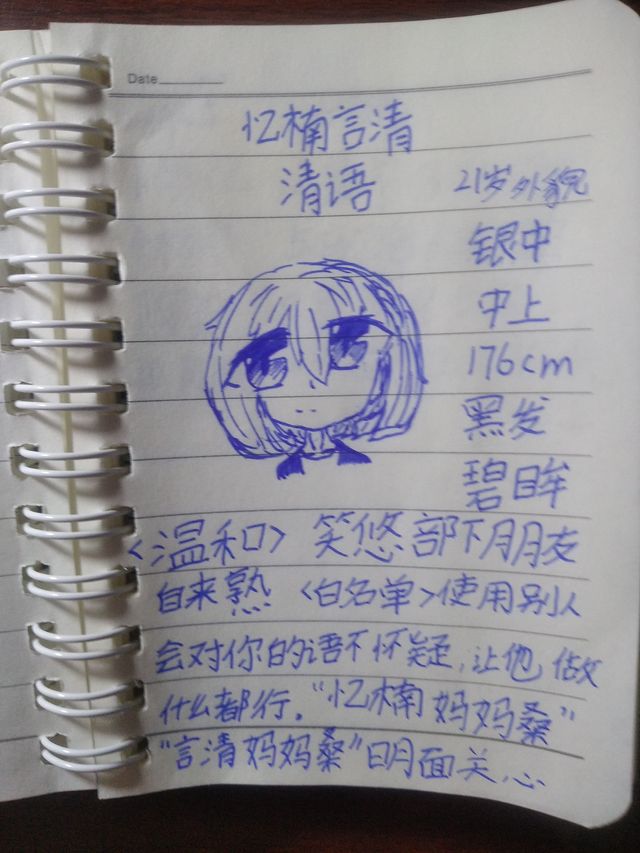 Date
忆楠言清
清语
21岁 外貌
银中
中上
176cm
黑发
碧眸
<温和> 笑悠部下朋友
自来熟 <白名单>使用别人
会对你的语不怀疑,让他做
什么都行。“忆楠妈妈桑”
“言清妈妈桑”明面关心